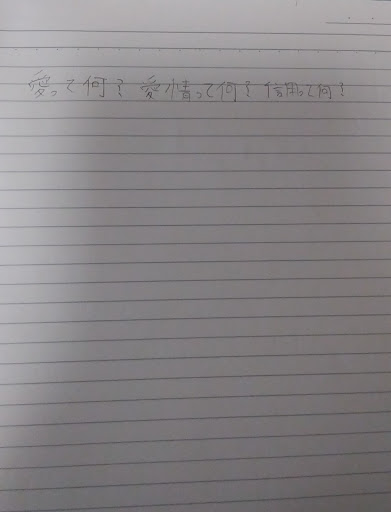 愛って何? 愛情って何? 信用って何?